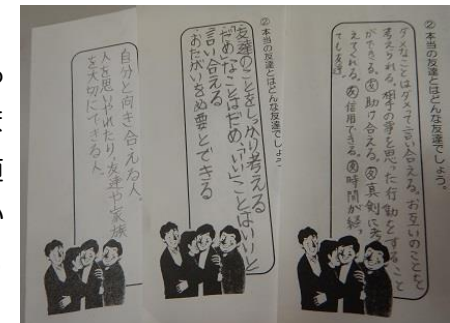 ②本当の友達とはどんな友達でしょう。
ダメなことはダメって言い合える。お互いのことを
考えられる。相手の事を思った行動をすること
ができる。助け合える。真剣に考
えてくれる。信用できる。時間が経っ
ても友達。
②本当の友達とはどんな友達でしょう。
友達のことをしっかり考える
だめなことはだめ、いいことはいいと
言い合える
おたがいを必要とできる
自分と向き合える人。
人を思いやれたり、友達や家族
を大切にできる人。